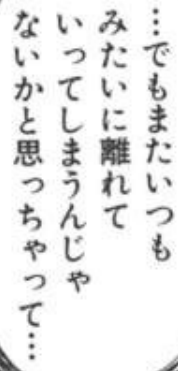 …でもまたいつも
みたいに離れて
いってしまうんじゃ
ないかと思っちゃって…